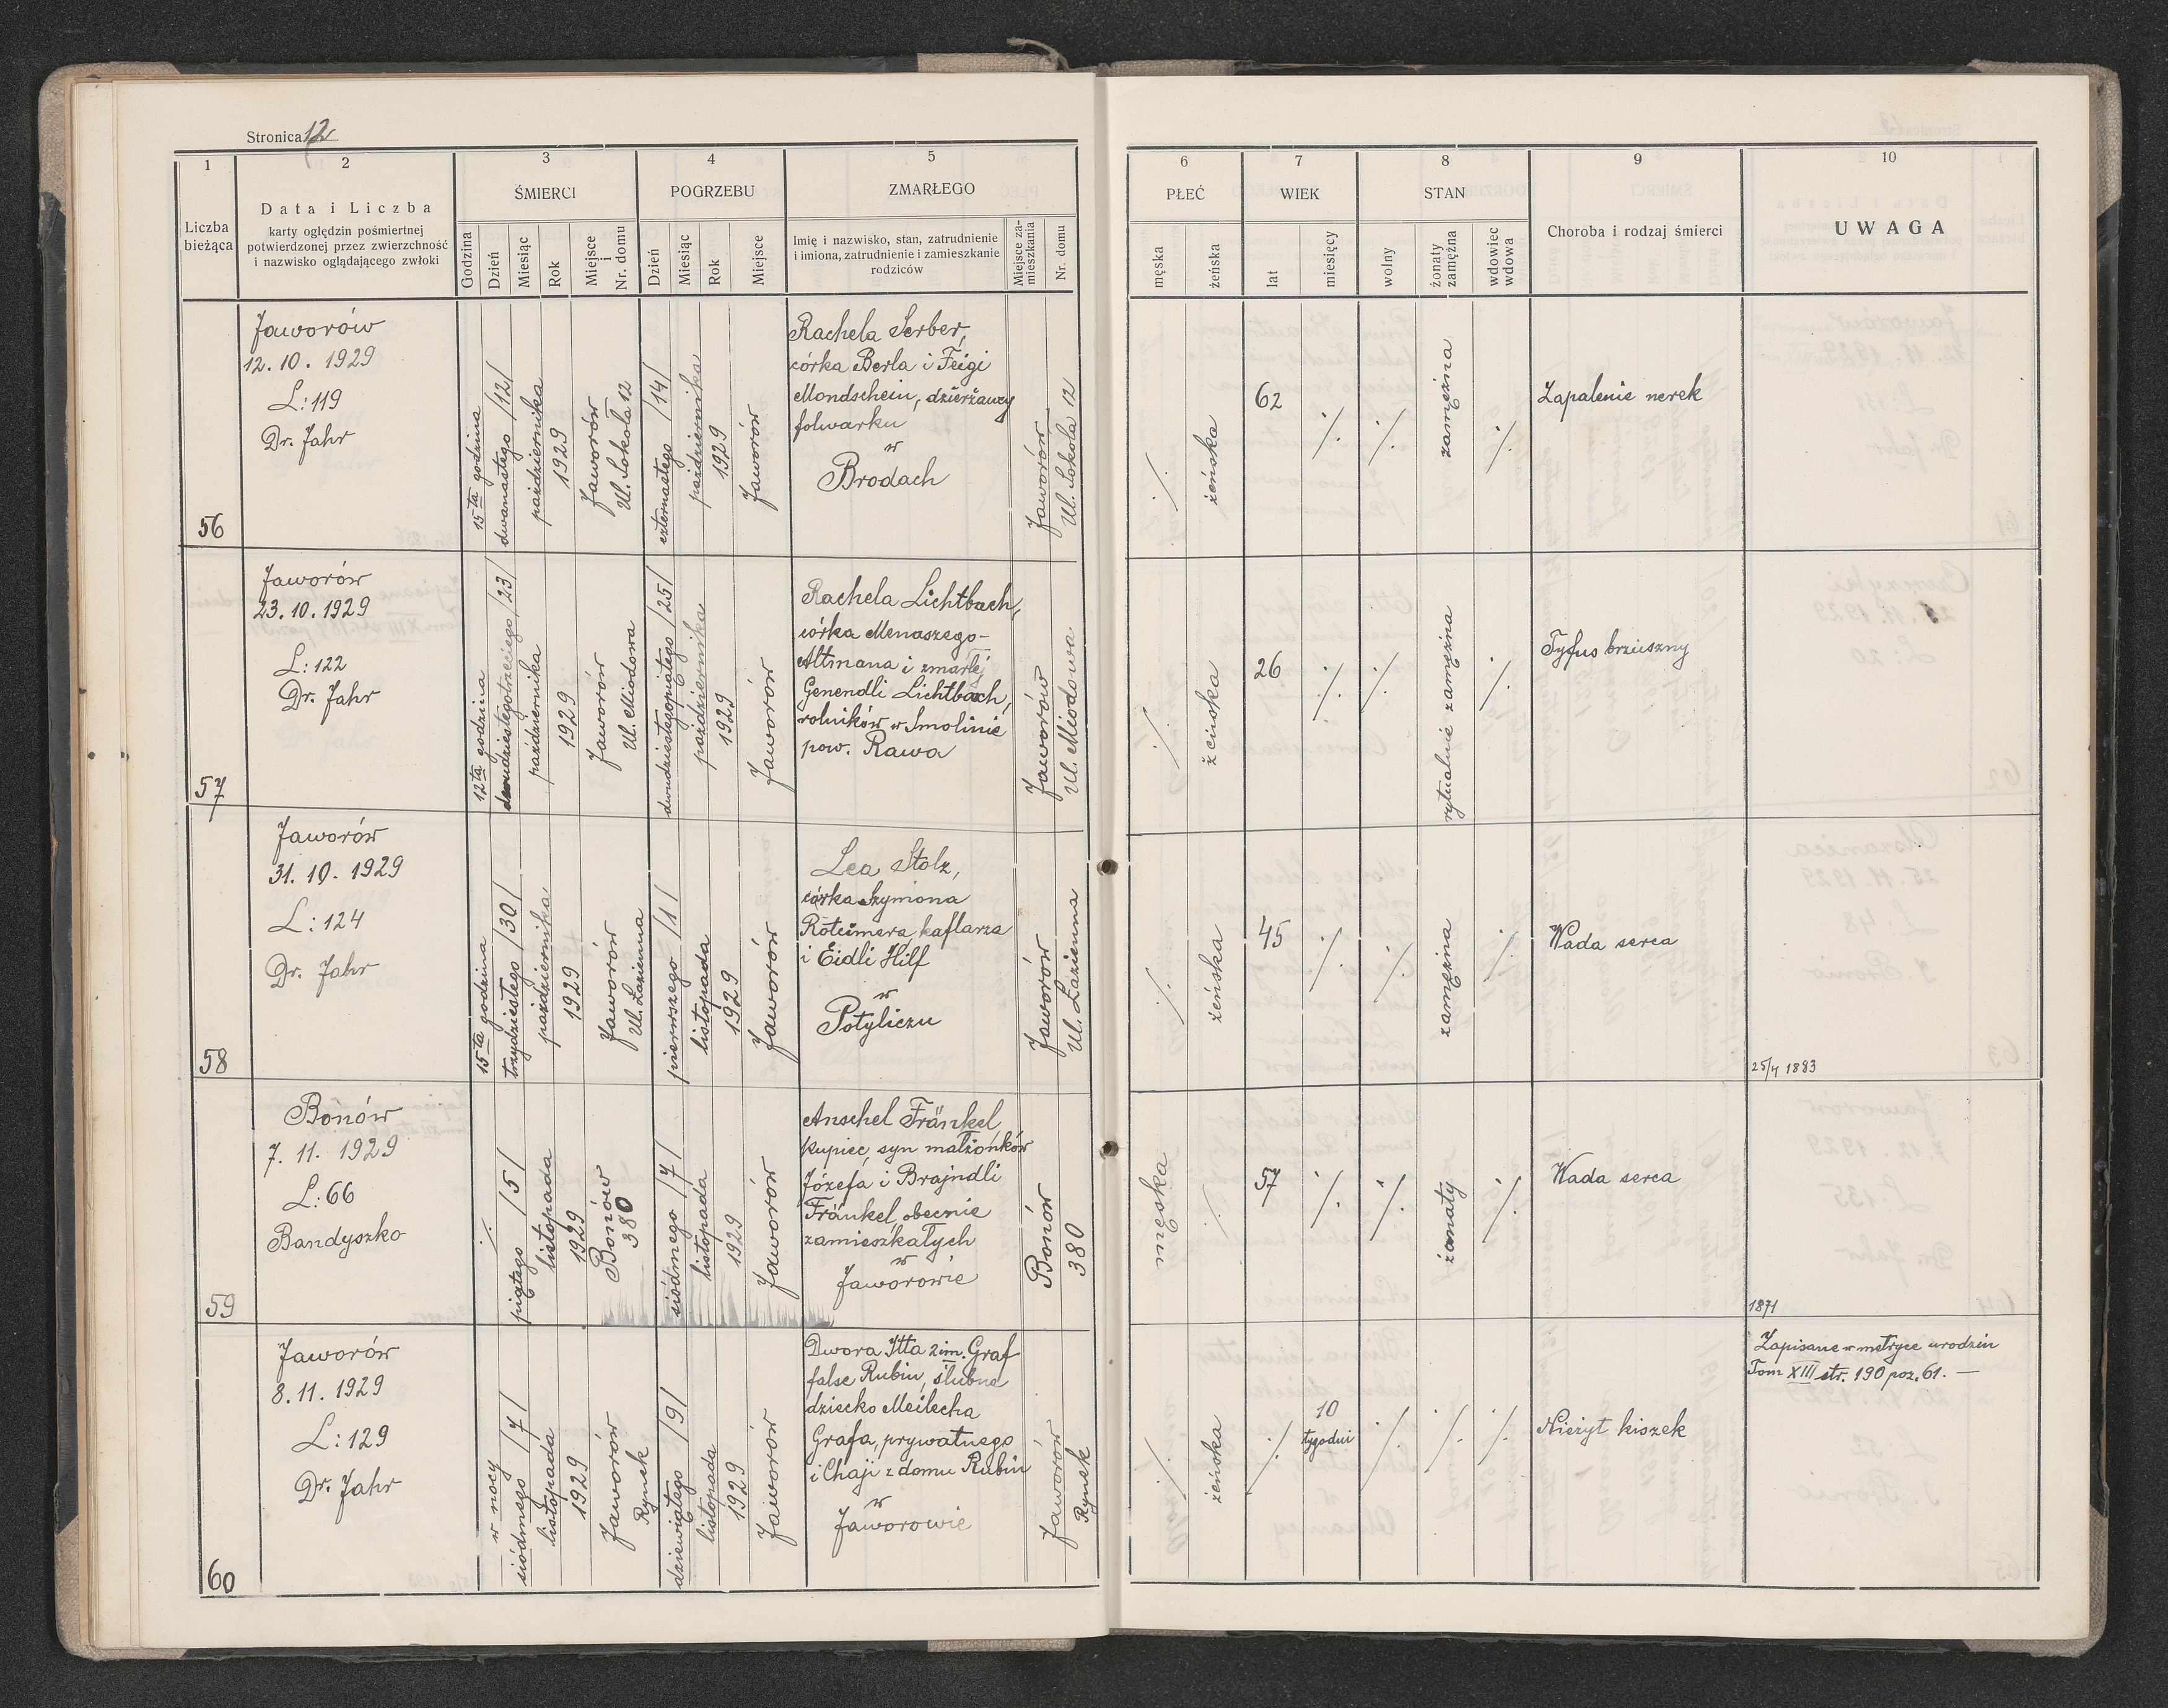 Stronica 12
1
2
3
4
5
Liczba
bieżąca
Data i Liczba
karty oględzin pośmiertnej
potwierdzonej przez zwierzchność
i nazwisko oglądającego zwłoki
ŚMIERCI
Godzina
Dzień
Miesiąc
Rok
Miejsce
i
Nr. domu
POGRZEBU
Dzień
Miesiąc
Rok
Miejsce
ZMARŁEGO
Imię i nazwisko, stan, zatrudnienie
i imiona, zatrudnienie i zamieszkanie
rodziców
Miejsce za-
mieszkania
Nr. domu
6
7
8
9
10
PŁEĆ
męska
żeńska
WIEK
lat
miesięcy
STAN
wolny
żonaty
zamężna
wdowiec
wdowa
Choroba i rodzaj śmierci
UWAGA
56
Jaworów
12. 10. 1929
L: 119
Dr. Jahr
15ta godzina
dwunastego /12/
października
1929
Jaworów
Ul. Sokoła 12
czternastego /14/
października
1929
Jaworów
Rachela Serber,
córka Berla i Feigi
Mondschein, dzierżawcy
folwarku
w
Brodach
Jaworów
Ul. Sokoła 12
./.
żeńska
62
./.
./.
zamężna
./.
Zapalenie nerek
57
Jaworów
23. 10. 1929
L: 122
Dr. Jahr
12ta godzina
dwudziestegotrzeciego /23/
października
1929
Jaworów
Ul. Miodowa
dwudziestegopiątego /25/
października
1929
Jaworów
Rachela Lichtbach,
córka Menaszego-
Altmana i zmarłej
Genendli Lichtbach,
rolników w Smolinie
pow. Rawa
Jaworów
Ul. Miodowa
./.
żeńska
26
./.
./.
rytualnie zamężna
./.
Tyfus brzuszny
58
Jaworów
31. 10. 1929
L: 124
Dr. Jahr
15ta godzina
trzydziestego /30/
października
1929
Jaworów
Ul. Łazienna
pierwszego /1/
listopada
1929
Jaworów
Lea Stolz,
córka Szymona
kaflarza
i Eidli Hilf
w
Potyliczu
Jaworów
Ul. Łazienna
./.
żeńska
45
./.
./.
zamężna
./.
Wada serca
25/4 1883
59
Bonów
7. 11. 1929
L: 66
Bandyszko
./.
piątego /5/
listopada
1929
Bonów
380
siódmego /7/
listopada
1929
Jaworów
Anschel Fränkel
kupiec, syn małżonków
Józefa i Brajndli
Fränkel, obecnie
zamieszkałych
w
Jaworowie
Bonów
380
męska
./.
57
./.
./.
żonaty
./.
Wada serca
1871
60
Jaworów
8. 11. 1929
L: 129
Dr. Jahr
w nocy
siódmego /7/
listopada
1929
Jaworów
Rynek
dziewiątego /9/
listopada
1929
Jaworów
Dwora Itta 2im. Graf
false Rubin, ślubne
dziecko Meilecha
Grafa, prywatnego
i Chaji z domu Rubin
w
Jaworowie
Jaworów
Rynek
./.
żeńska
./.
10
tygodni
./.
./.
./.
Nieżyt kiszek
Zapisane w metryce urodzin
Tom XIII str. 190 poz. 61. —